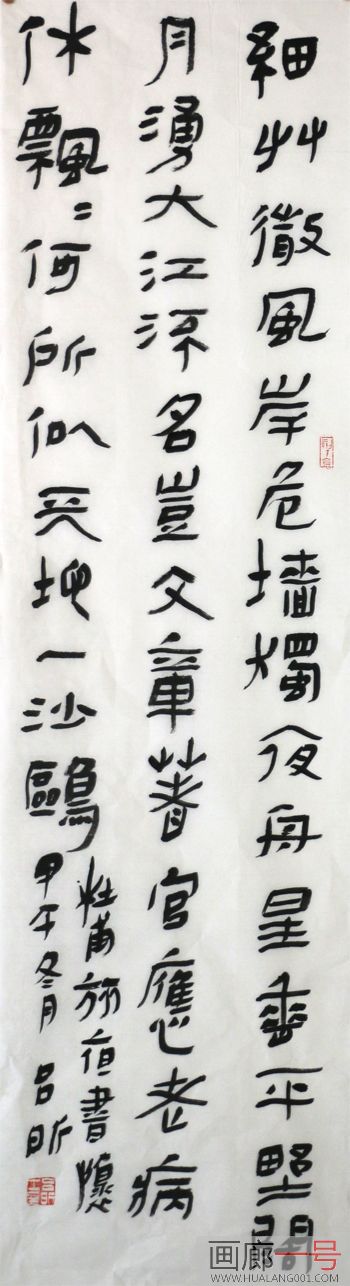 細艸微風岸危墻獨夜舟星垂平野闊
月湧大江流名豈文章著官應老病
休飄〻何所似天地一沙鷗
杜甫旅夜書懷
甲午冬月 吕昕
画廊一号
WWW.HUALANG001.COM